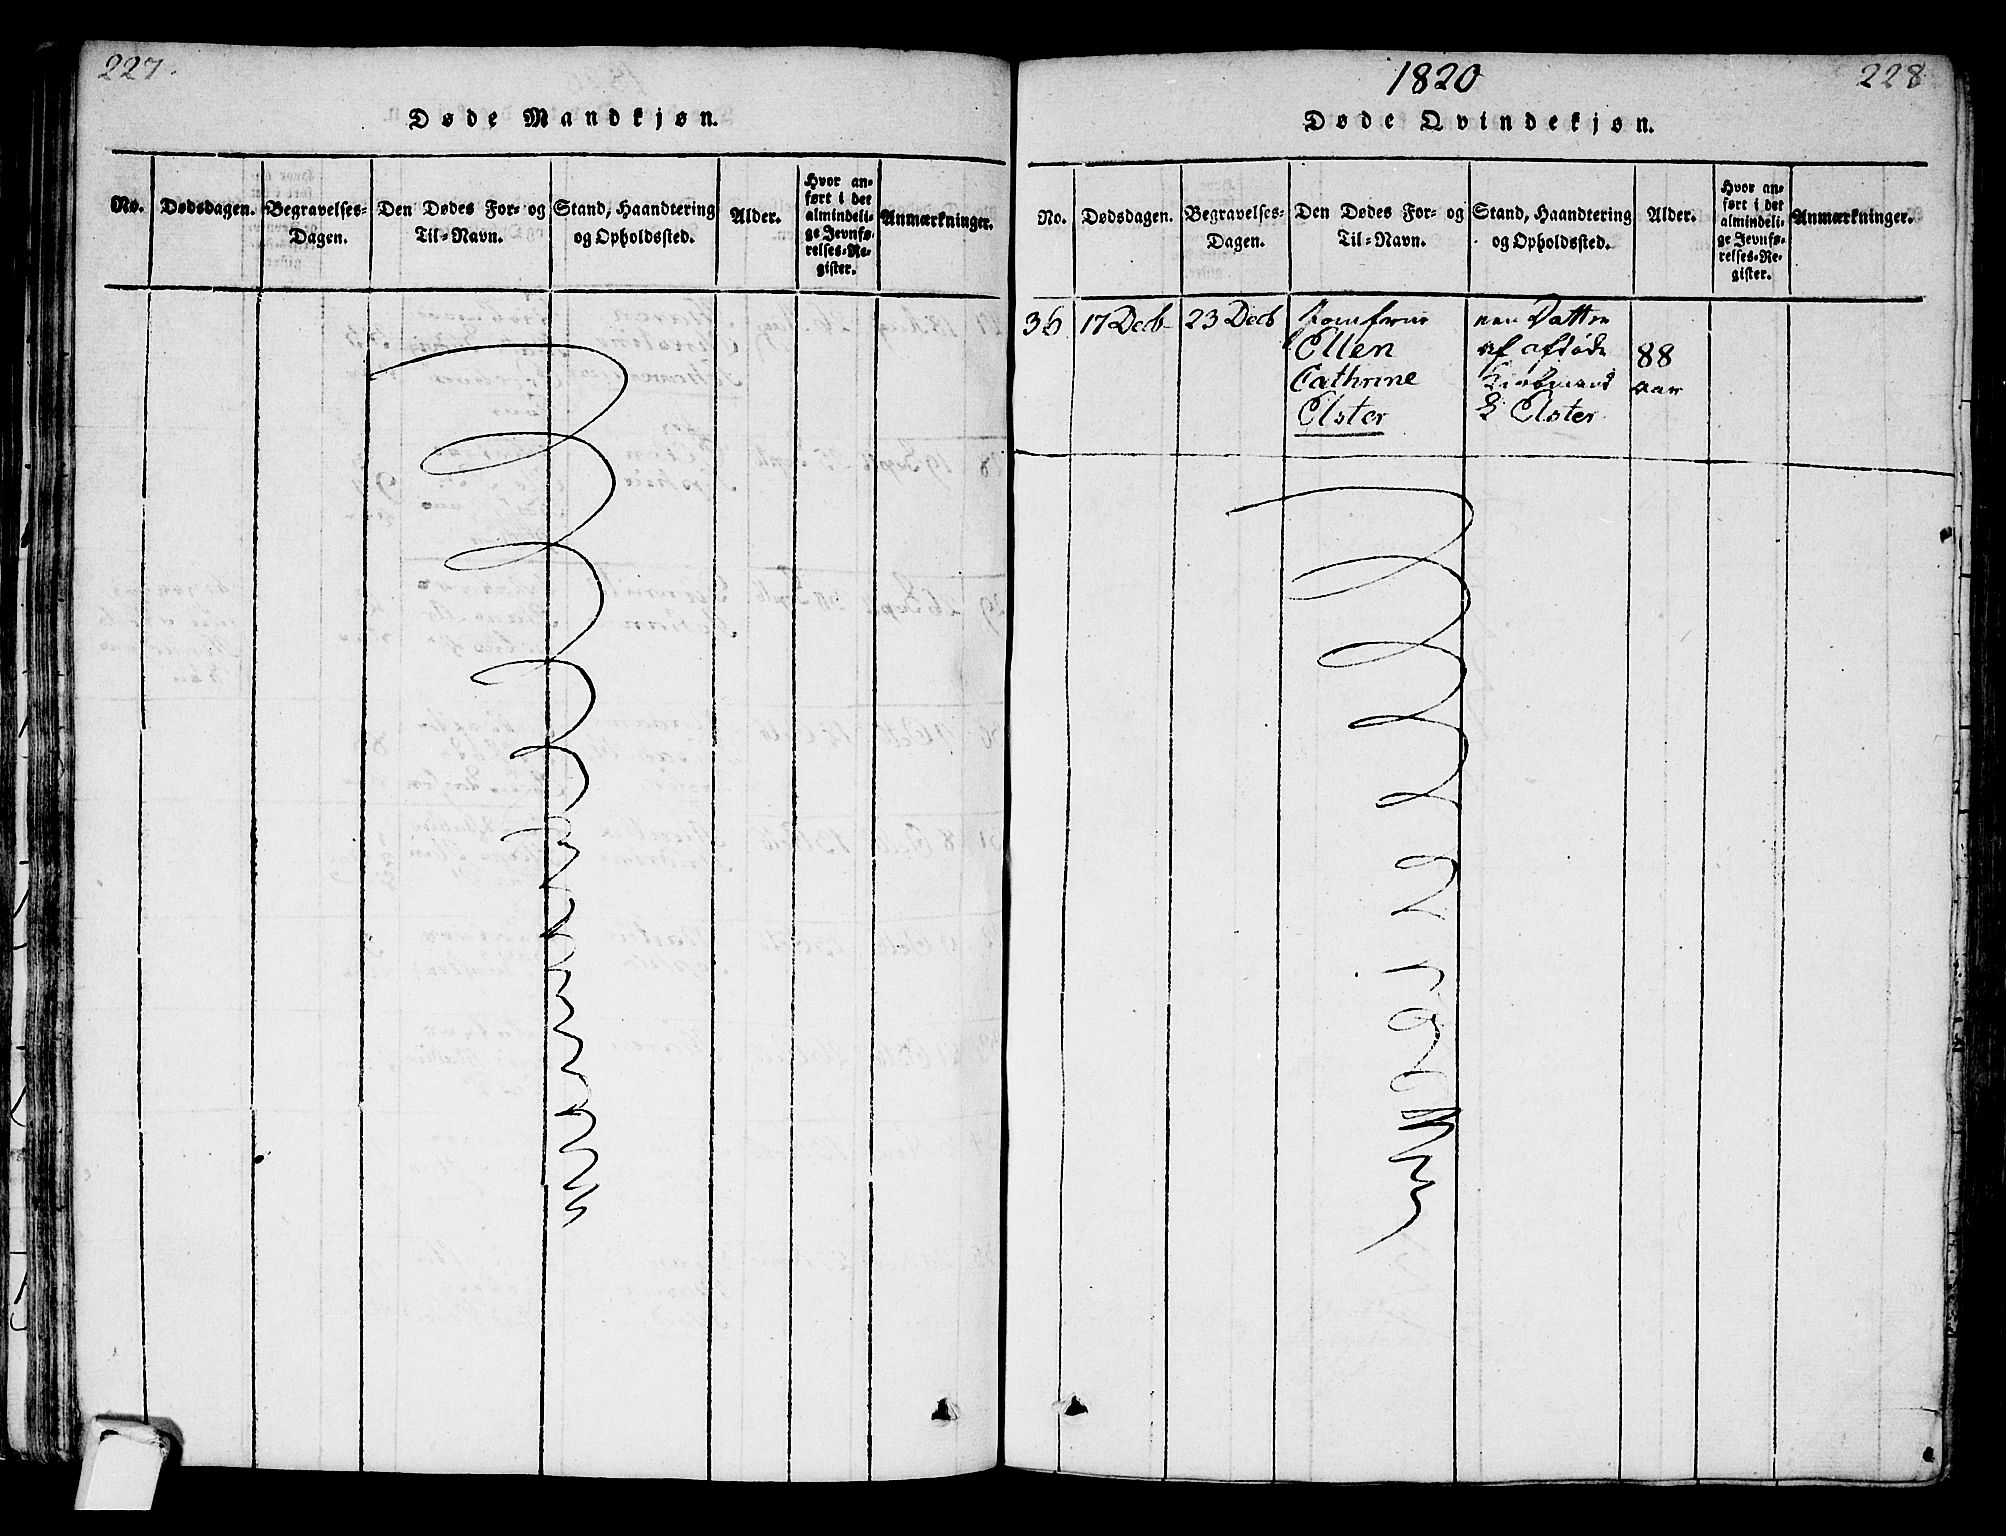 227.
Døde Mandkjøn.
No.
Dødsdagen.
Begravelses-
Dagen.
Den Dødes For- og
Til-Navn.
Stand, Haandtering
og Opholdssted.
Alder.
Hvor an-
ført i det
almindeli-
ge Jevnfø-
relses-Re-
gister.
Anmærkninger.
1820
228
Døde Qvindekjøn.
No.
Dødsdagen.
Begravelses-
Dagen.
Den Dødes For- og
Til-Navn.
Stand, Haandtering
og Opholdssted.
Alder.
Hvor an-
ført i det
almindeli-
ge Jevnfø-
relses-Re-
gister.
Anmærkninger.
36
17 Decb
23 Decb
Jomfrue
Ellen
Cathrine
Elster
en Datter
af afdøde
Kiøbmand
Elster
88
Aar